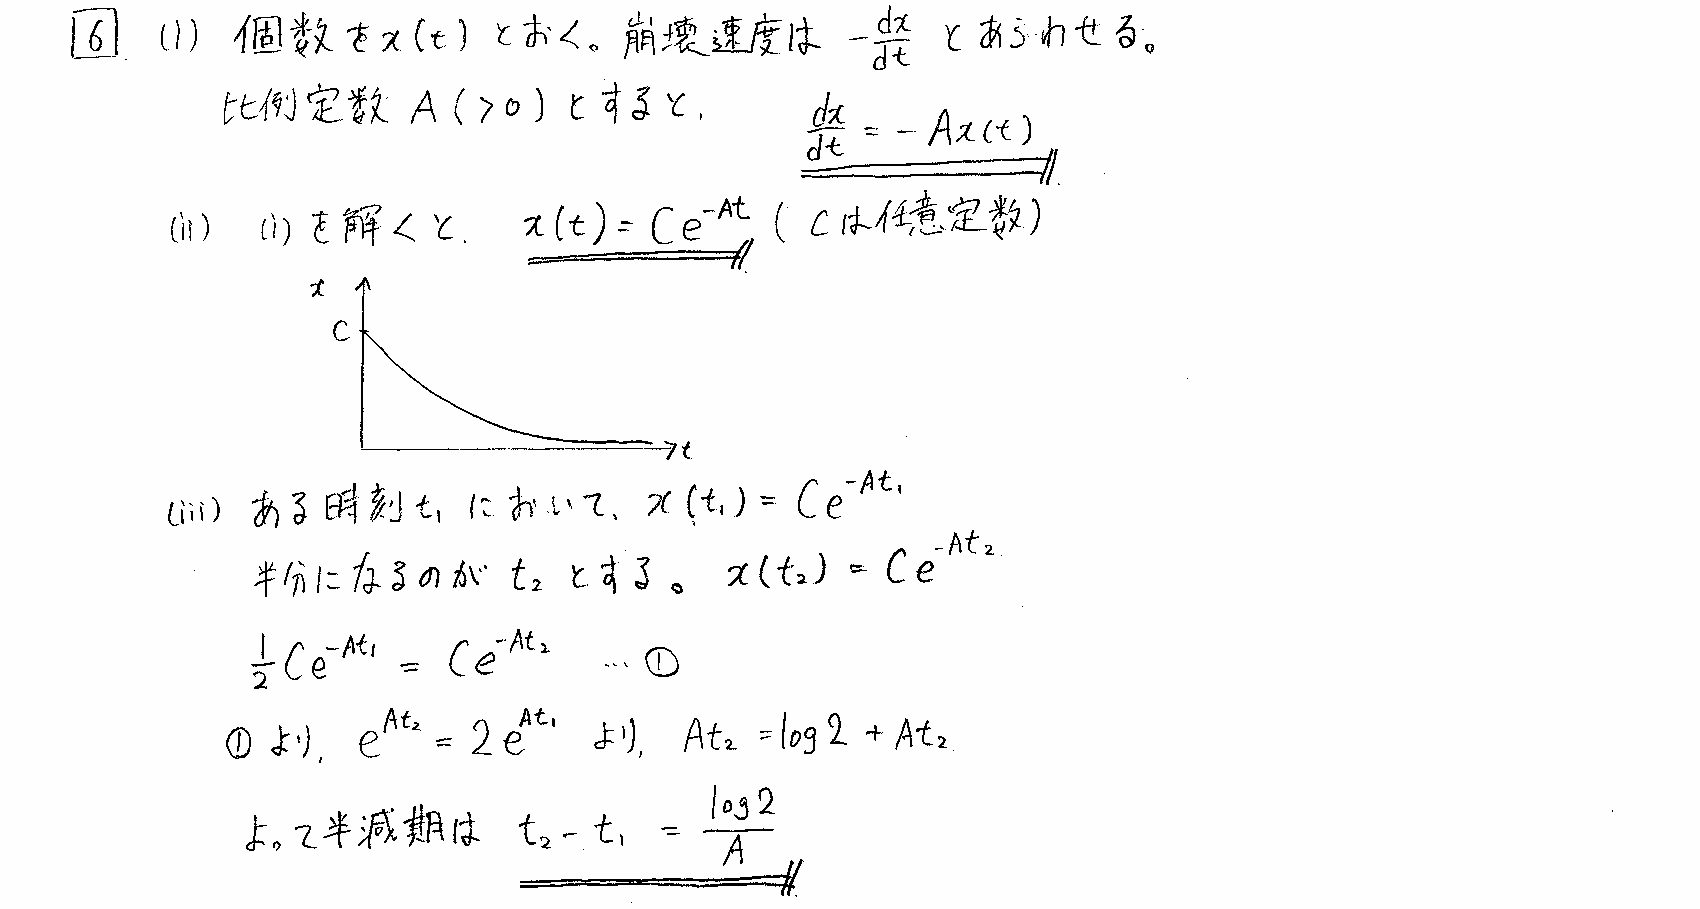 6 (i) 個数をx(t)とおく。崩壊速度は -dx/dt とあらわせる。
比例定数 A(>0)とすると、 dx/dt = -Ax(t)
(ii) (i)を解くと、 x(t) = Ce^{-At} (Cは任意定数)
x
C
t
(iii) ある時刻t₁において、x(t₁) = Ce^{-At₁}
半分になるのが t₂ とする。 x(t₂) = Ce^{-At₂}
1/2 Ce^{-At₁} = Ce^{-At₂} … ①
①より、 e^{At₂} = 2e^{At₁} より、 At₂ = log2 + At₂
よって半減期は t₂ - t₁ = log2/A